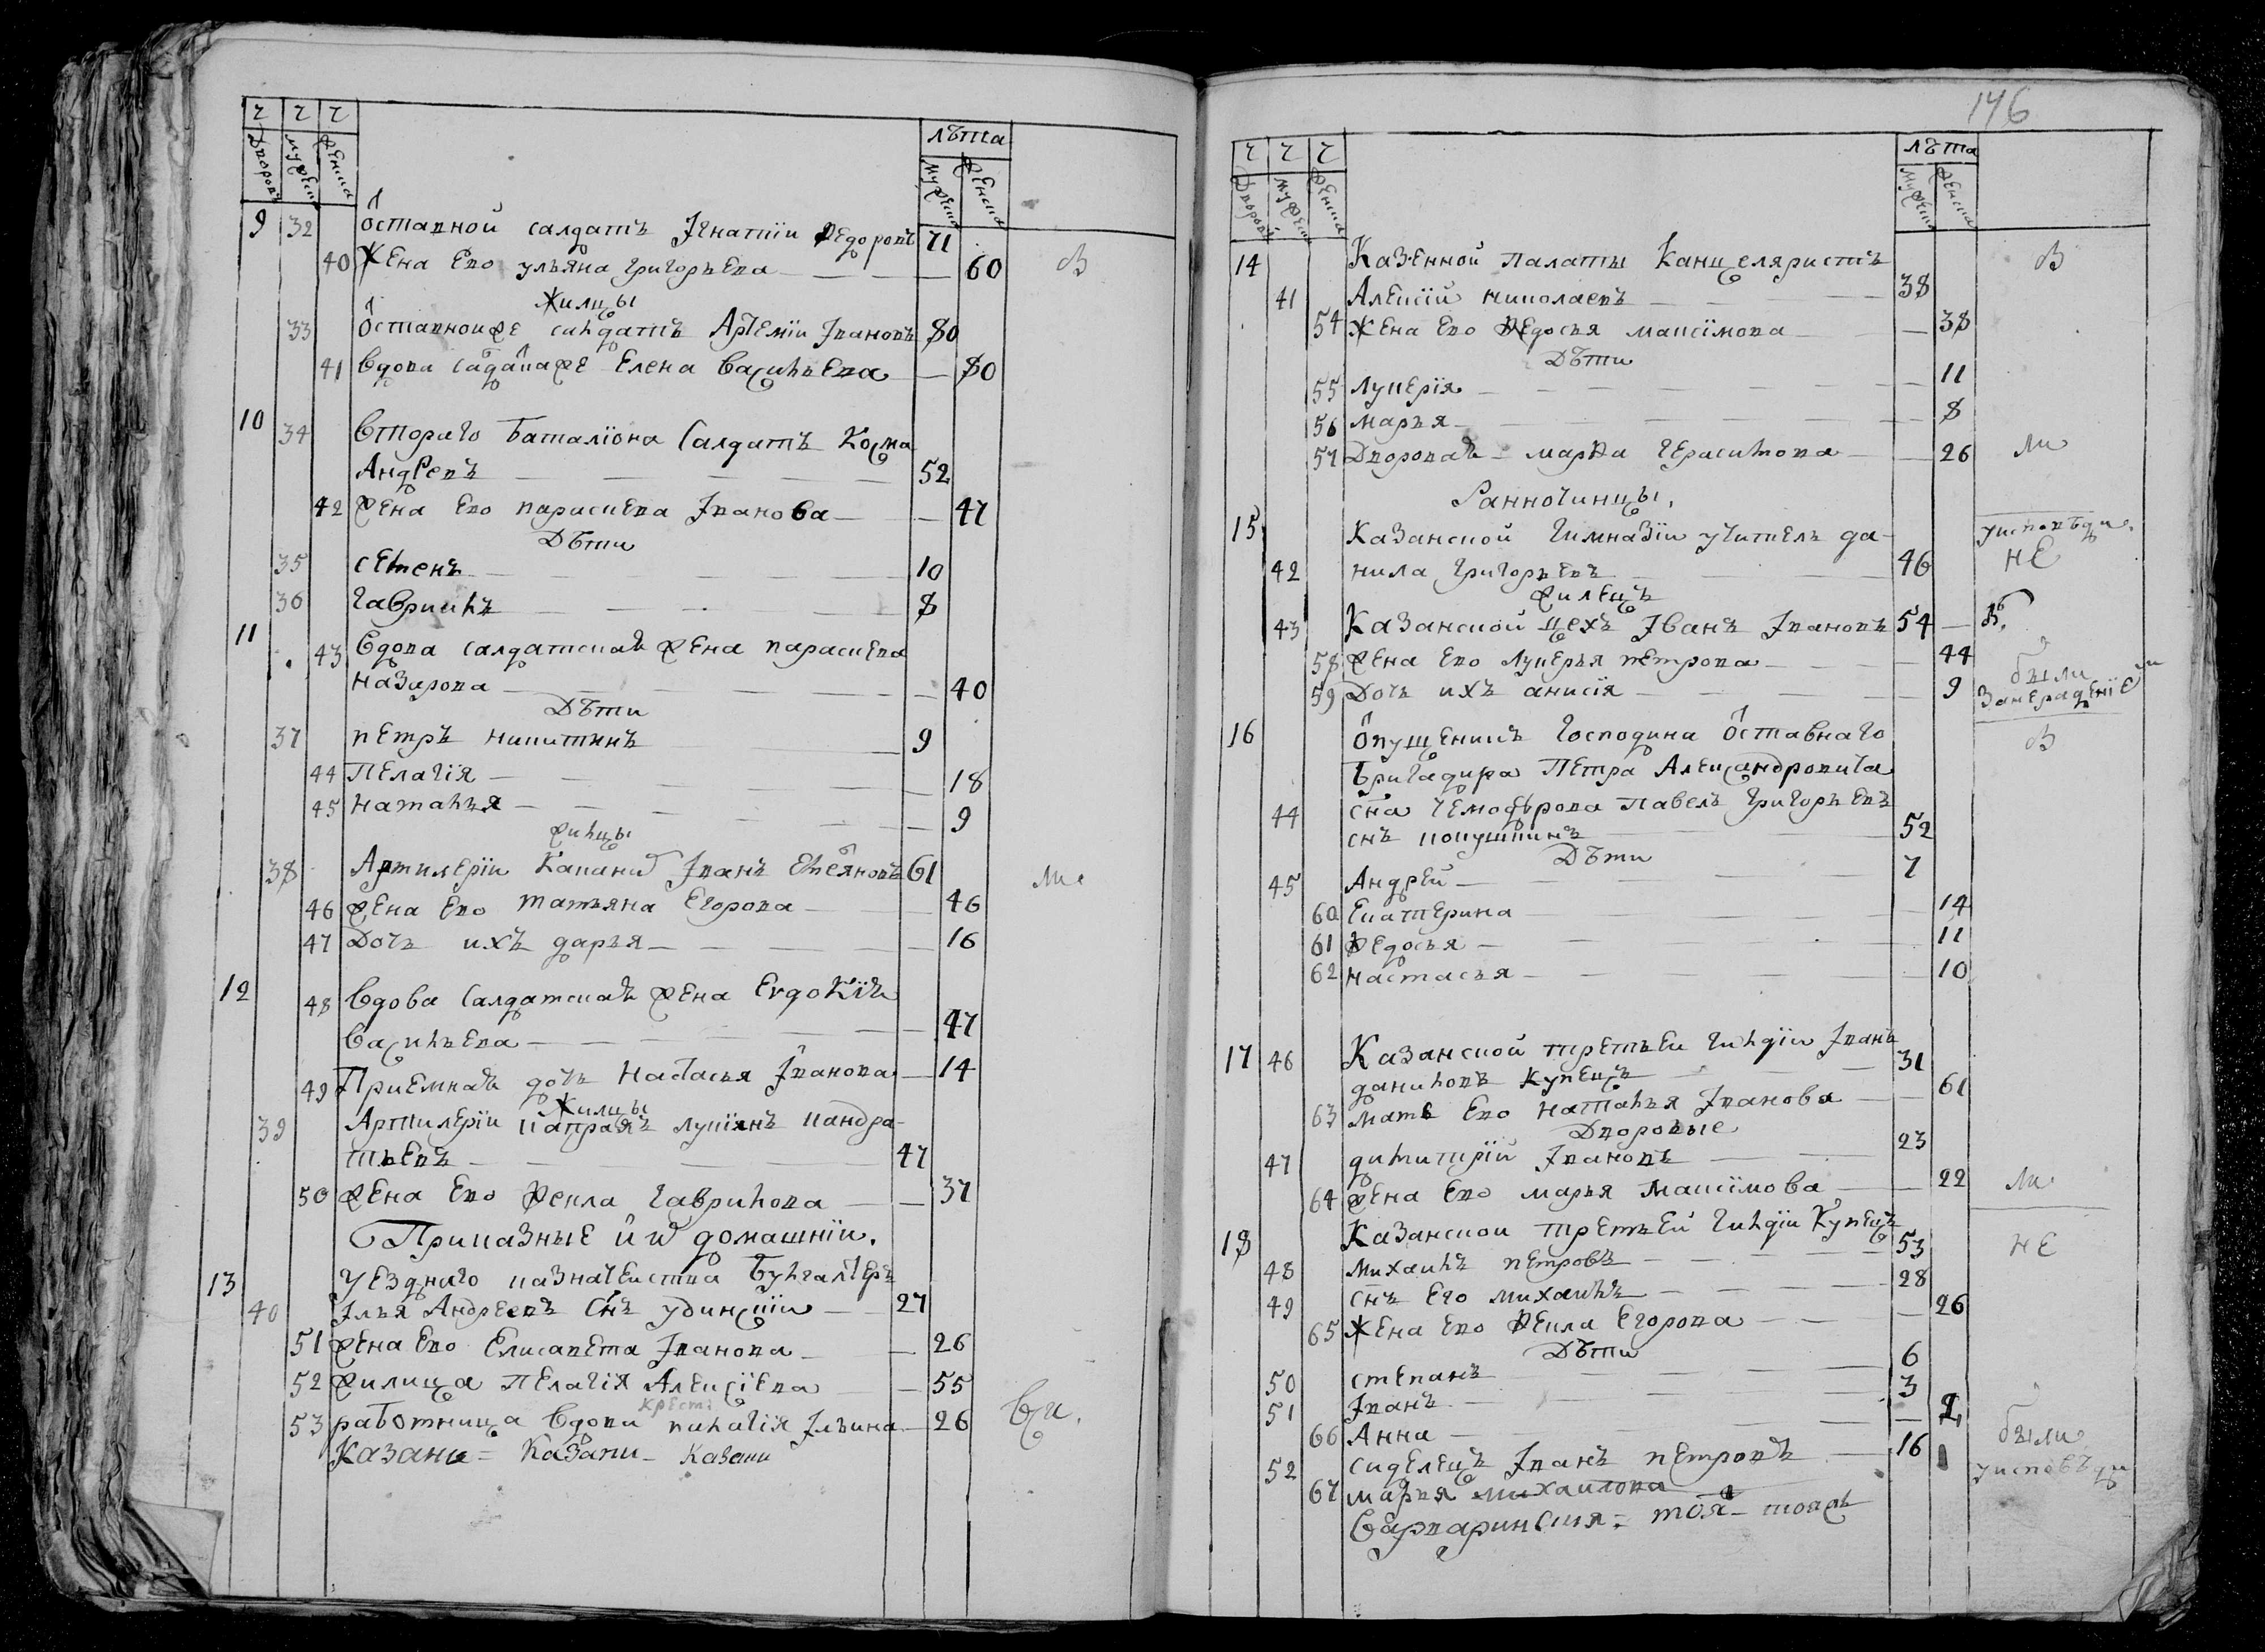 Ч Ч Ч
Дворовъ мужеска женска
лѣта
мужеска женска
9 32 Ѿставной салдатъ Iгнатïи Ѳедоровъ 71
40 Жена Ево ульяна григорьева 60 В
Жилцы
33 Ѿставной же салдатъ Артемïи Iвановъ 80
41 Вдова салдацкаяже Елена Васильева 80
10 34 Втораго баталïона Салдатъ Косма
Андреевъ 52
42 жена Ево параскева Iванова 47
Дѣти
35 семенъ 10
36 гаврилъ 8
11 43 Вдова салдатская жена параскева
назарова 40
Дѣти
37 петръ никитинъ 9
44 Пелагïя 18
45 наталья 9
жилцы
38 Артилерïи Канани Iванъ Емеяновъ 61 ли
46 жена Ево татьяна Егорова 46
47 Дочь ихъ дарья 16
12 48 Вдова салдатская жена Евдокïя
Васильева 47
49 Приемная дочь настасья Iванова 14
Жилцы
39 Артилерïи капралъ лукïянъ кандра-
тьевъ 47
50 жена Ево Ѳекла гаврилова 37
Приказные и ѿ домашнïи.
13 Уезднаго казначеиства Бухгалтеръ
40 Iлья Андреевъ снъ удинскïи 27
51 жена Ево Елисавета Iванова 26
52 жилица пелагïя Алексïева 55
крест
53 работница вдова пилагïя Iльина 26 Вси.
Казани = Казани - Казани
146
Ч Ч Ч
Дворовъ мужеска женска
лѣта
мужеска женска
14 Казенной палаты Канцеляристъ В
41 Алексïй николаевъ 38
54 Жена Ево Ѳедосья максïмова 38
Дѣти
55 лукерïя 11
56 марья 8
57 Дворовая марѳа герасимова 26 ли
Разночинцы.
15 Казанской гимназïи учитель да- уисповѣди
42 нила григорьевъ 46 не
жилецъ
43 Казанской цехъ Iванъ Iвановъ 54 В.
58 жена Ево лукерья петрова 44 были
59 Дочь ихъ анисïя 9
16 Ѿпущеникъ господина Ѿставнаго В
Бригадира Петра Александровича
44 сна чемодурова павелъ григорьевъ
снъ кокушкинъ 52
Дѣти
45 Андрей 7
60 Екатерина 14
61 Ѳедосья 11
62 настасья 10
17 46 Казанской третьеи гилдïи Iванъ
даниловъ купецъ 31
63 мать Ево наталья Iванова 61
Дворовые
47 димитрïй Iвановъ 23
64 жена Ево марья максïмова 22 ли
18 Казанской третьей гилдïи Купецъ
48 михаилъ петровъ 53 не
49 снъ Его михаилъ 28
65 Жена Ево Ѳекла Егорова 26
Дѣти
50 степанъ 6
51 Iванъ 3
66 Анна 2 были
52 сиделецъ Iванъ петровъ 16 уисповѣди
67 марья михаилова
Варваринская = тоя - тояже